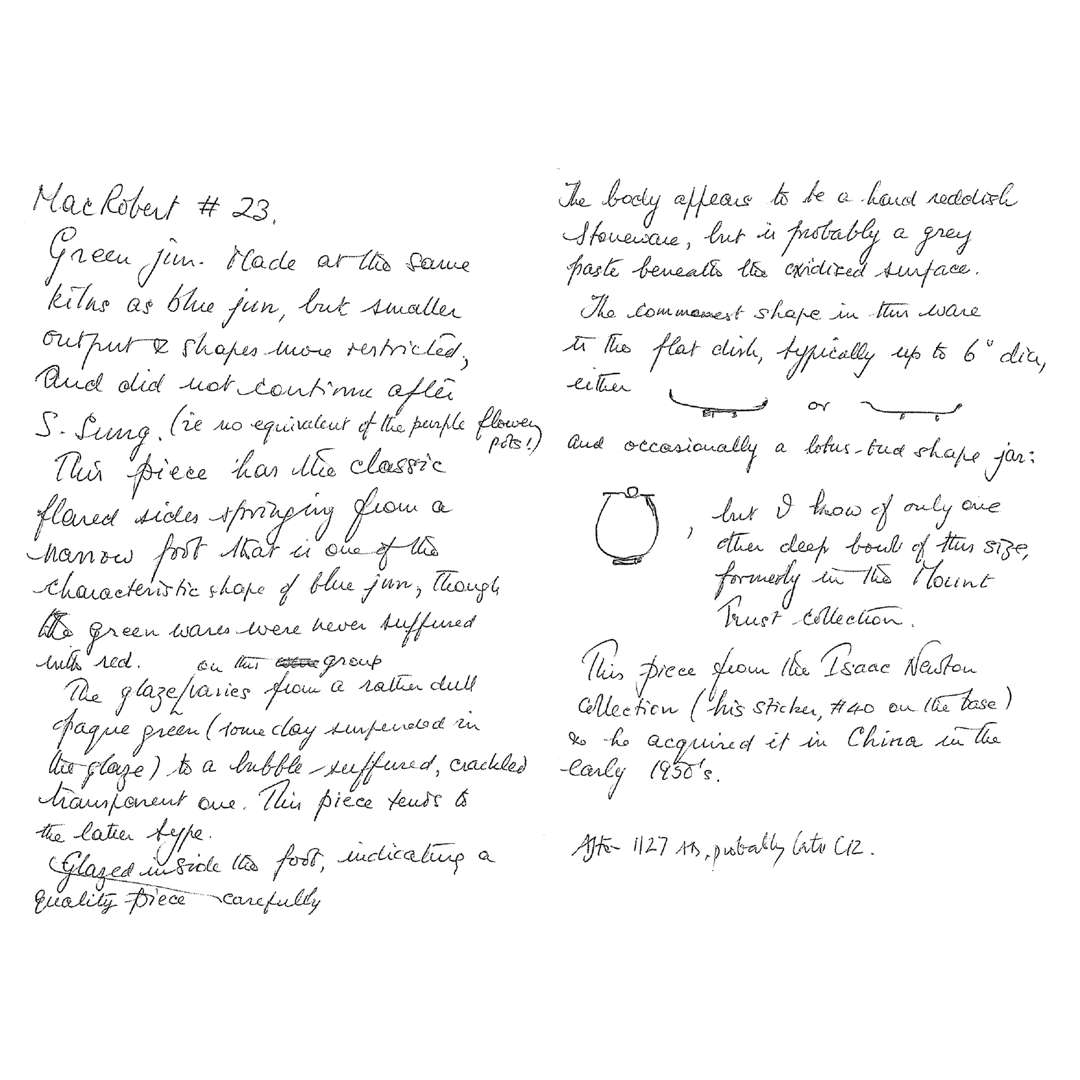 MacRobert # 23.
Green jun. Made at the same
kilns as blue jun, but smaller
output & shapes more restricted,
and did not continue after
S. Sung. (ie no equivalent of the purple flower
pots!)
This piece has the classic
flared sides springing from a
narrow foot that is one of the
characteristic shape of blue jun, though
the green wares were never suffused
with red.
on this group
The glaze varies from a rather dull
opaque green (some clay suspended in
the glaze) to a bubble-suffused, crackled
transparent one. This piece tends to
the latter type.
Glazed inside the foot, indicating a
quality piece carefully
The body appears to be a hard reddish
stoneware, but is probably a grey
paste beneath the oxidized surface.
The commonest shape in this ware
is the flat dish, typically up to 6" dia,
either or
and occasionally a lotus-bud shape jar:
, but I know of only one
other deep bowl of this size,
formerly in the Mount
Trust collection.
This piece from the Isaac Newton
Collection (his sticker, #40 on the base)
& he acquired it in China in the
early 1930's.
After 1127 AD, probably late C12.